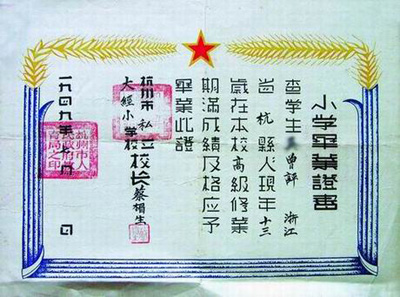 小学畢業證書
查學生 曾評 浙江
省 杭 縣人現年十三
歲在本校高級修業
期滿成績及格應予
畢業此證
杭州市 私立
大經小學校校長蔡相生
一九四九年七月 日
杭州市人民政府教育局之印